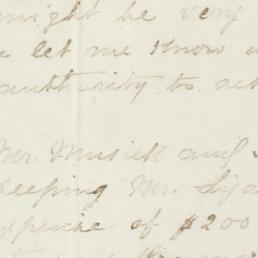 might be very
let me know
authority to act
Mr. Musick and
keeping Mr.
expense of $200